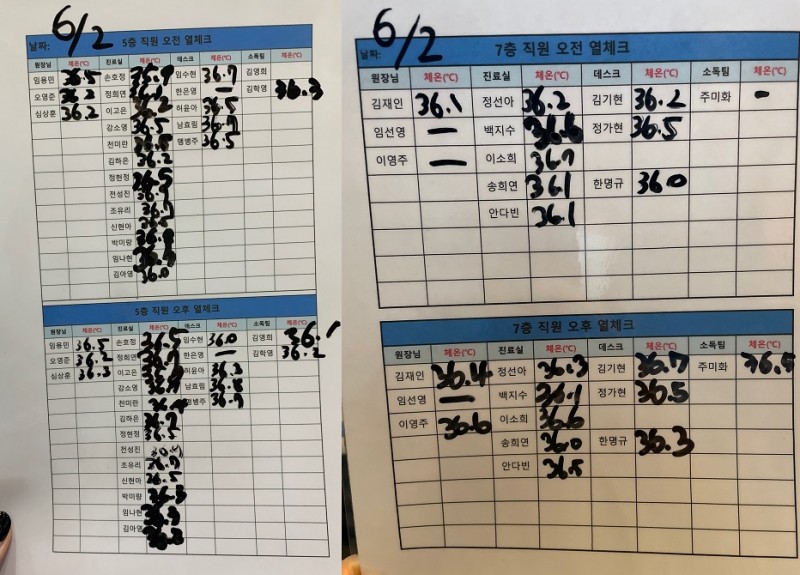 날짜: 6/2 5층 직원 오전 열체크
원장님 체온(℃) 진료실 체온(℃) 데스크 체온(℃) 소독팀 체온(℃)
임용민 36.5 손호정 임수현 36.7 김영희
오영준 36.2 정희연 한은영 - 김학영 36.3
심상훈 36.2 이고은 허윤아 36.5
강소영 36.5 남효림
천미란 맹병주 36.5
김하은 36.2
정현정 36.5
전성진
조유리
신현아
박미랑
임나현
김아영 36.0
5층 직원 오후 열체크
원장님 체온(℃) 진료실 체온(℃) 데스크 체온(℃) 소독팀 체온(℃)
임용민 36.5 손호정 36.5 임수현 36.0 김영희 36.1
오영준 36.2 정희연 한은영 - 김학영 36.2
심상훈 36.3 이고은 허윤아 36.3
강소영 남효림
천미란 맹병주 36.7
김하은
정현정
전성진
조유리
신현아 36.5
박미랑 36.3
임나현
김아영
날짜: 6/2 7층 직원 오전 열체크
원장님 체온(℃) 진료실 체온(℃) 데스크 체온(℃) 소독팀 체온(℃)
김재인 36.1 정선아 36.2 김기현 36.2 주미화 -
임선영 - 백지수 36.6 정가현 36.5
이영주 - 이소희 36.7
송희연 36.1 한명규 36.0
안다빈 36.1
7층 직원 오후 열체크
원장님 체온(℃) 진료실 체온(℃) 데스크 체온(℃) 소독팀 체온(℃)
김재인 36.4 정선아 36.3 김기현 36.7 주미화 36.5
임선영 - 백지수 36.1 정가현 36.5
이영주 36.6 이소희 36.6
송희연 36.0 한명규 36.3
안다빈 36.5